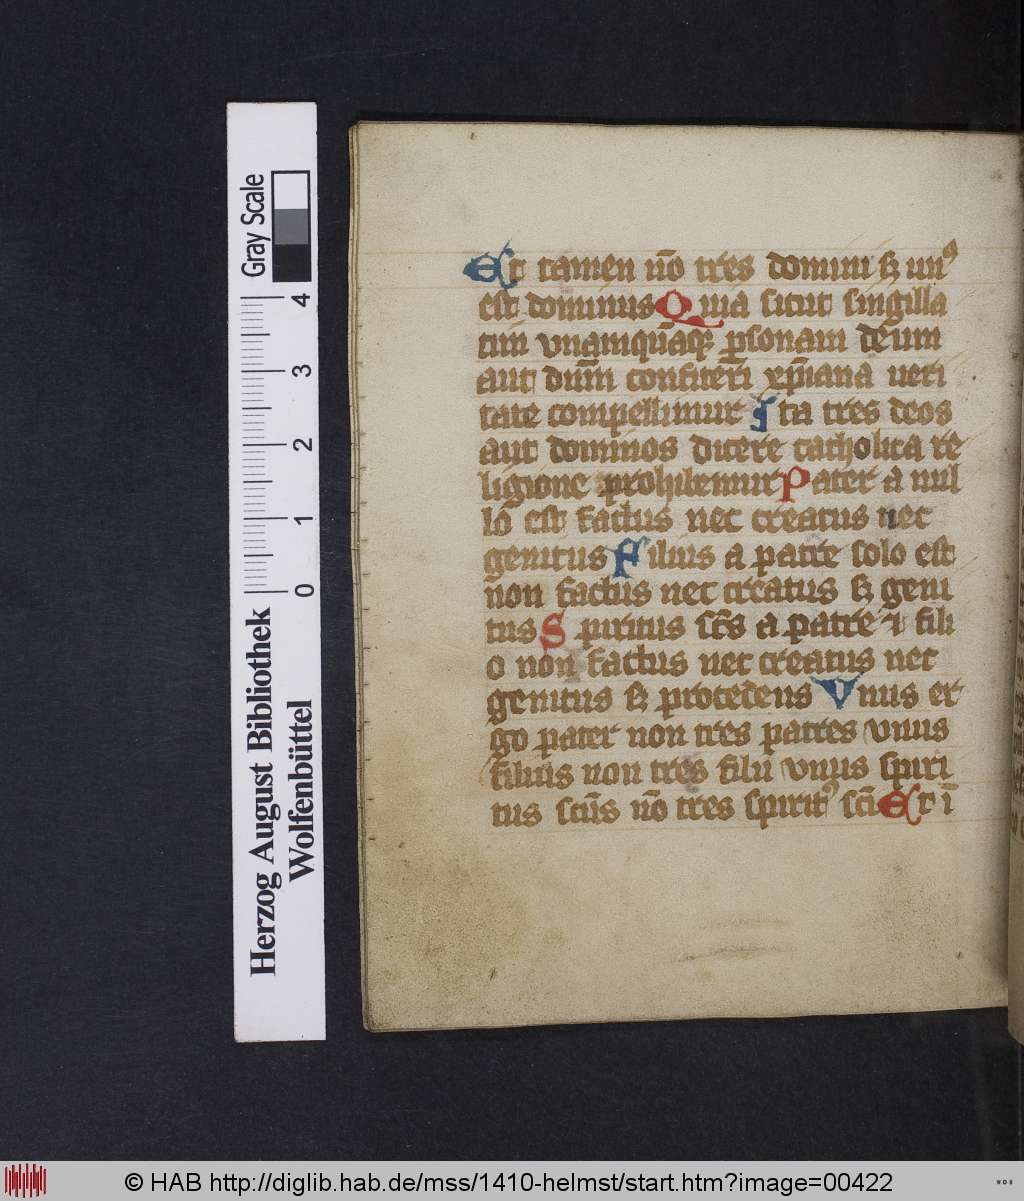 Et tamen nō tres domini sꝫ unꝰ
est dominus Quia sicut singilla
tim vnamquāqꝫ ꝑsonam deum
aut dūm confiterī xp̄iana ueri
tate compellimur Ita tres deos
aut dominos dicere catholica re
ligione prohibemur Pater a nul
lo est factus nec creatus nec
genitus Filius a patre solo est
non factus nec creatus sꝫ geni
tus Spiritus sc̄s a patre ⁊ fili
o non factus nec creatus nec
genitus sꝫ procedens Vnus er
go pater non tres patres vnus
filius non tres filii vnus spiri
tus sc̄us nō tres spiritꝰ sc̄i Et ī
Gray Scale
4
3
2
1
0
Herzog August Bibliothek
Wolfenbüttel
© HAB http://diglib.hab.de/mss/1410-helmst/start.htm?image=00422